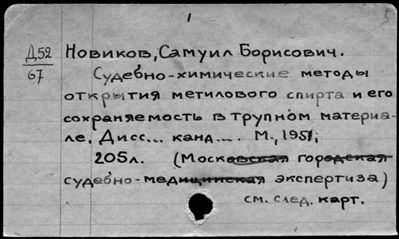 1
Д52
67
Новиков, Самуил Борисович.
Судебно-химические методы
открытия метилового спирта и его
сохраняемость в трупном материа-
ле. Дисс... канд... М., 1951,
205л. (Московская городская
судебно-медицинская экспертиза)
см. след. карт.